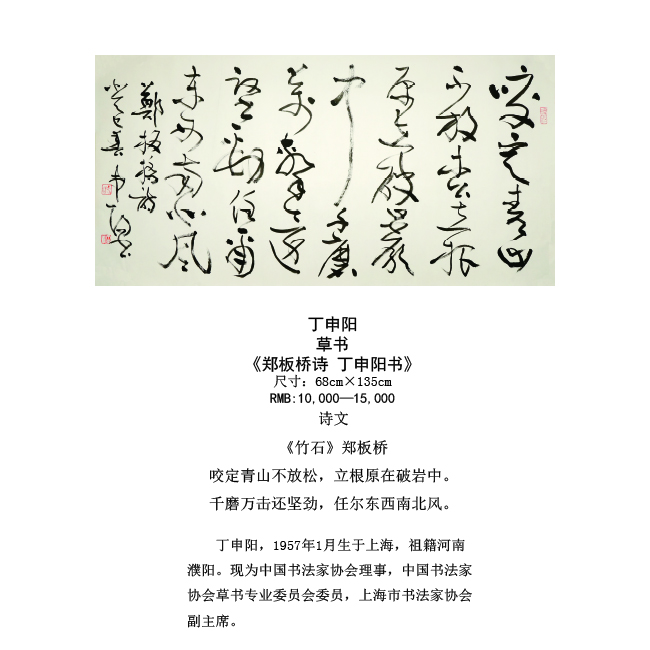 咬定青山
不放松立根
原在破巖
中千磨
萬擊還
堅勁任爾
東西南北風
鄭板橋詩
癸巳春申陽書
丁申阳
草书
《郑板桥诗 丁申阳书》
尺寸：68cm×135cm
RMB:10,000—15,000
诗文
《竹石》郑板桥
咬定青山不放松，立根原在破岩中。
千磨万击还坚劲，任尔东西南北风。
丁申阳，1957年1月生于上海，祖籍河南
濮阳。现为中国书法家协会理事，中国书法家
协会草书专业委员会委员，上海市书法家协会
副主席。